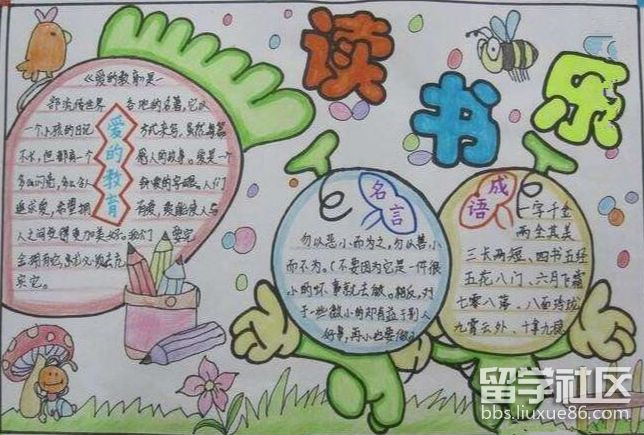 读书乐
《爱的教育》是一
部流传世界 各地的名著,它以
一个小孩的日记 方式来写,虽然每篇
不长,但都有一个 感人的故事。爱是一个
爱的教育
人之间变得更加美好。我们 要完
实它。
名言
勿以恶小而为之,勿以善小
而不为。(不要因为它是一件很
小的坏事就去做。相反,对
于一些微小的却有益于别人
好事,再小也要做)
成语
一字千金
两全其美
三长两短、四书五经
五花八门、六月飞霜
七零八落、八面玲珑
九霄云外、十拿九稳
留学社区
bbs.liuxue86.com